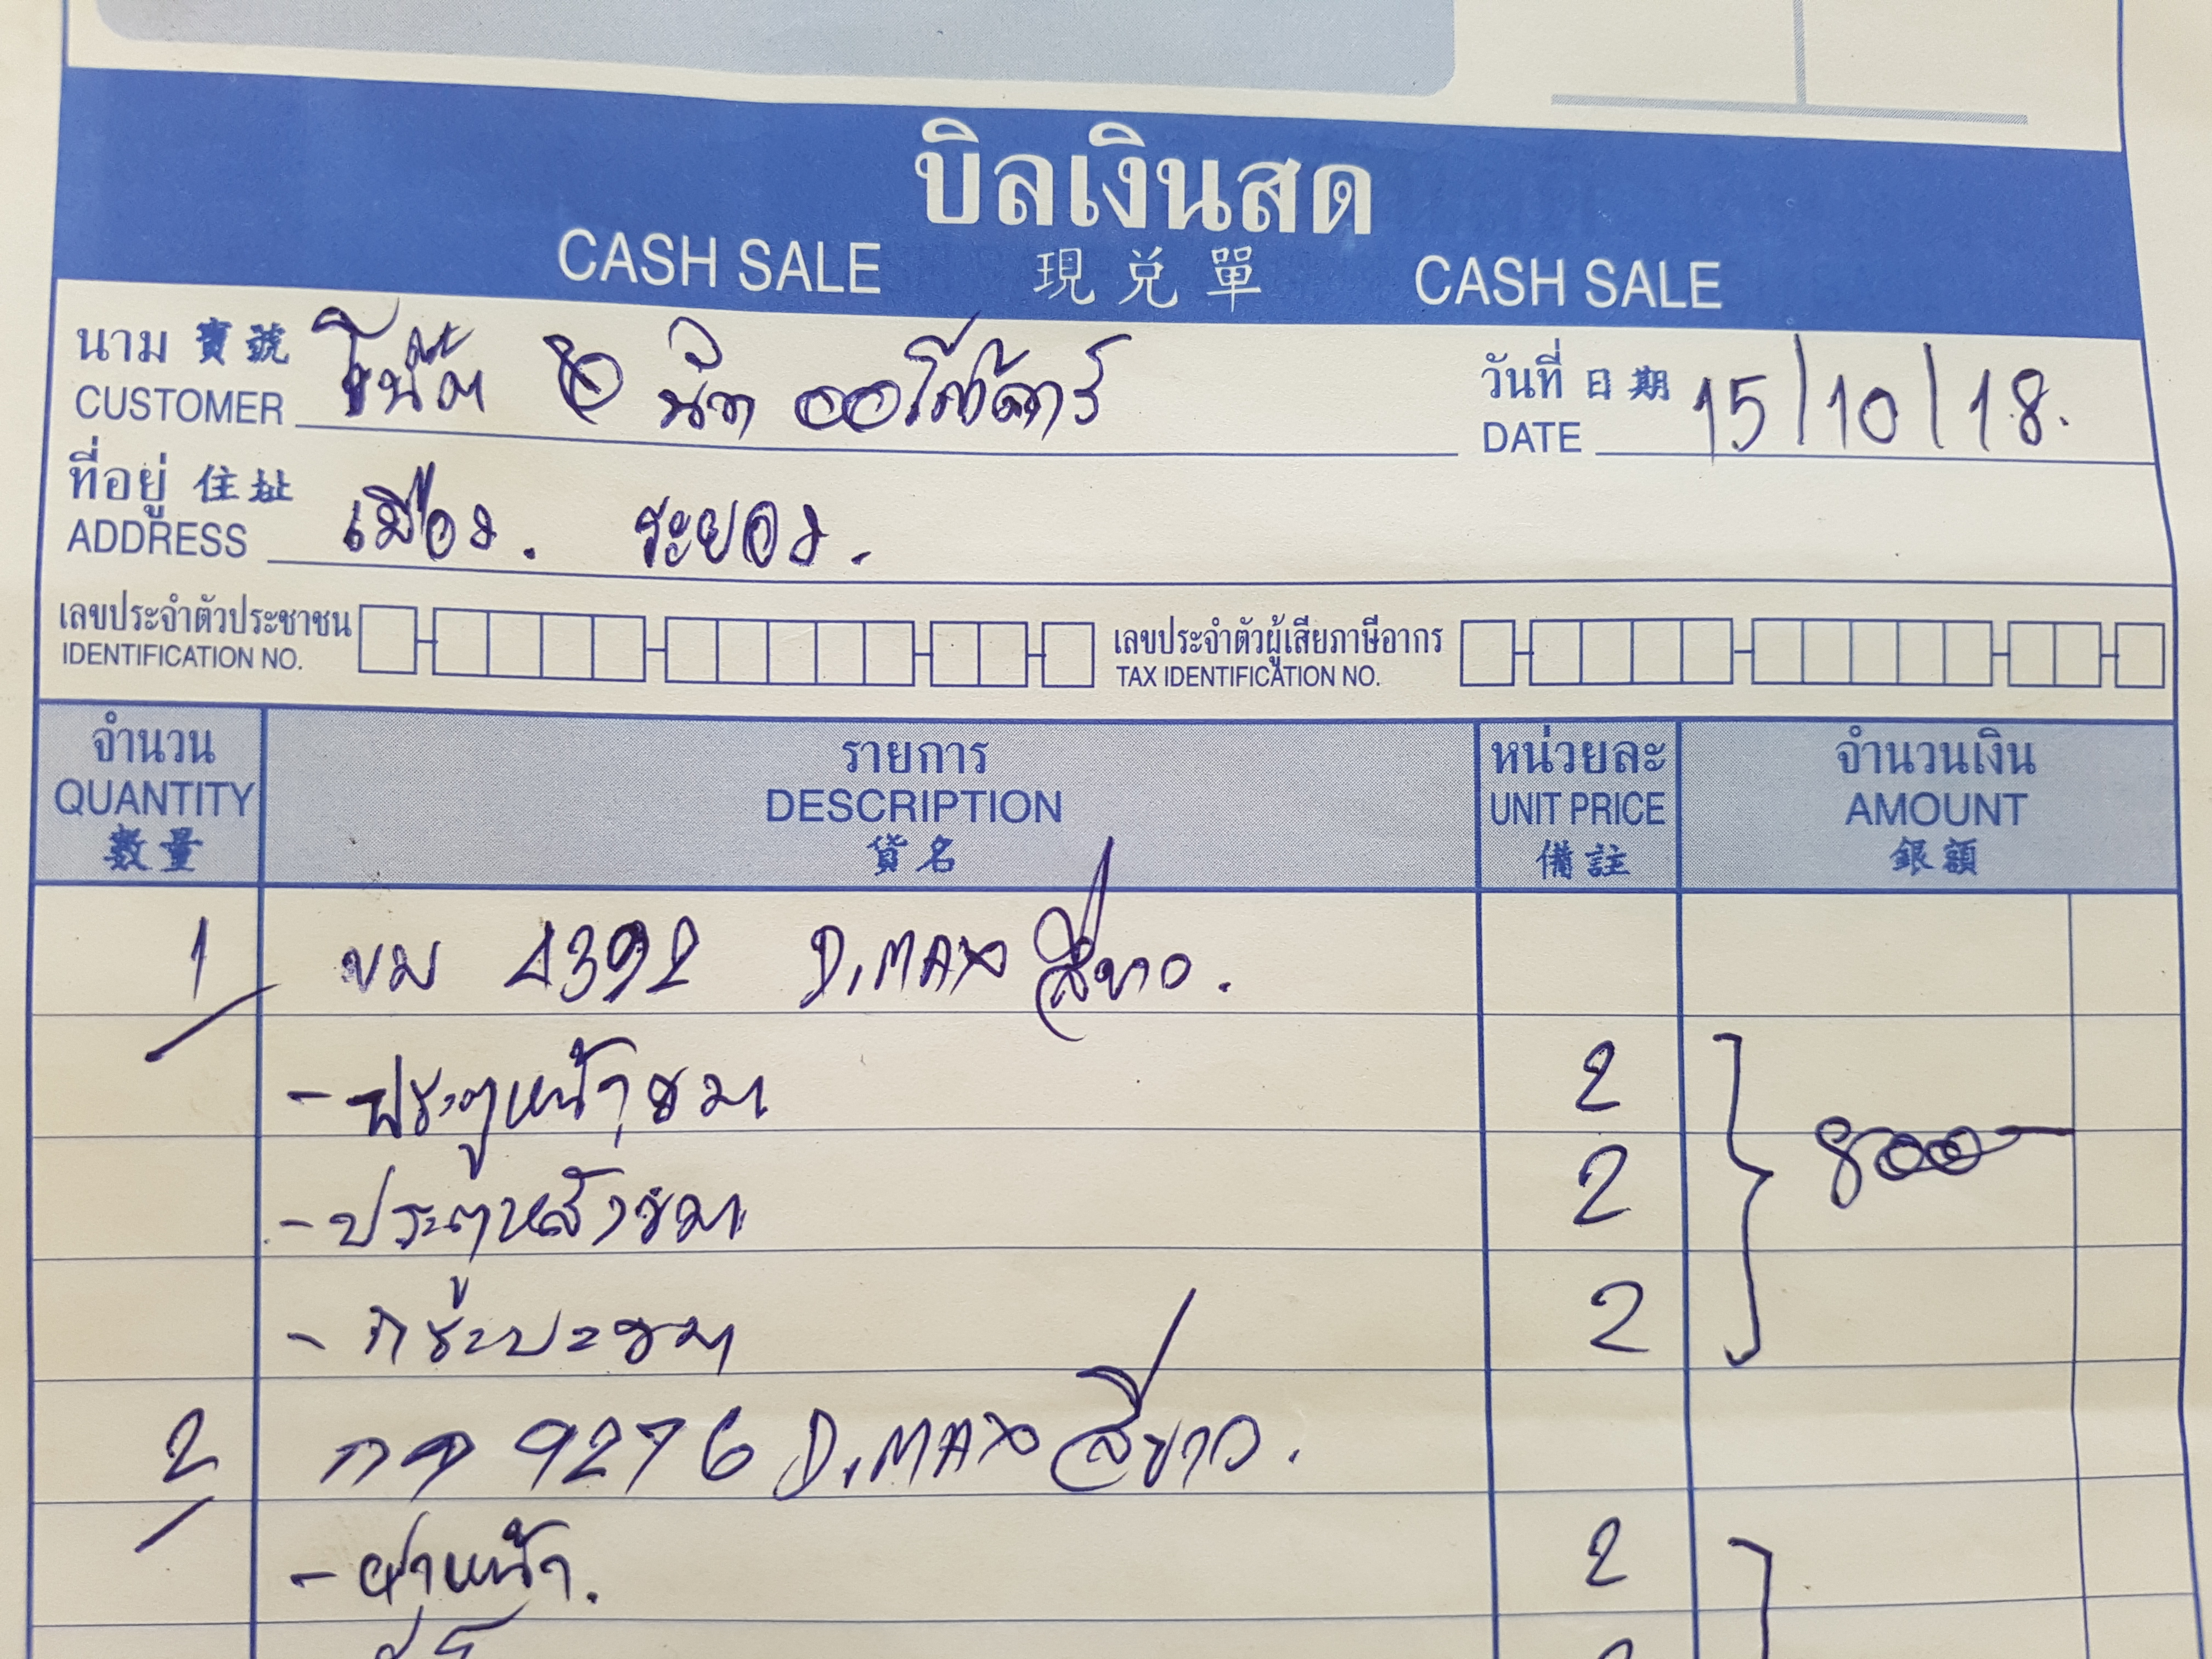 บิลเงินสด
CASH SALE 現兌單 CASH SALE
นาม 寶號 วันที่ 日期
CUSTOMER นิว ออโต้คาร์ DATE 15/10/18.
ที่อยู่ 住址
ADDRESS เมือง. ระยอง.
เลขประจำตัวประชาชน เลขประจำตัวผู้เสียภาษีอากร
IDENTIFICATION NO. TAX IDENTIFICATION NO.
จำนวน รายการ หน่วยละ จำนวนเงิน
QUANTITY DESCRIPTION UNIT PRICE AMOUNT
數量 貨名 備註 銀額
1 ขม 4392 D.MAX สีขาว.
- ประตูหน้าขวา 2
- ประตูหลังขวา 2 8000
- กระบะขวา 2
2 กต 9276 D.MAX สีขาว.
- ฝาหน้า. 2